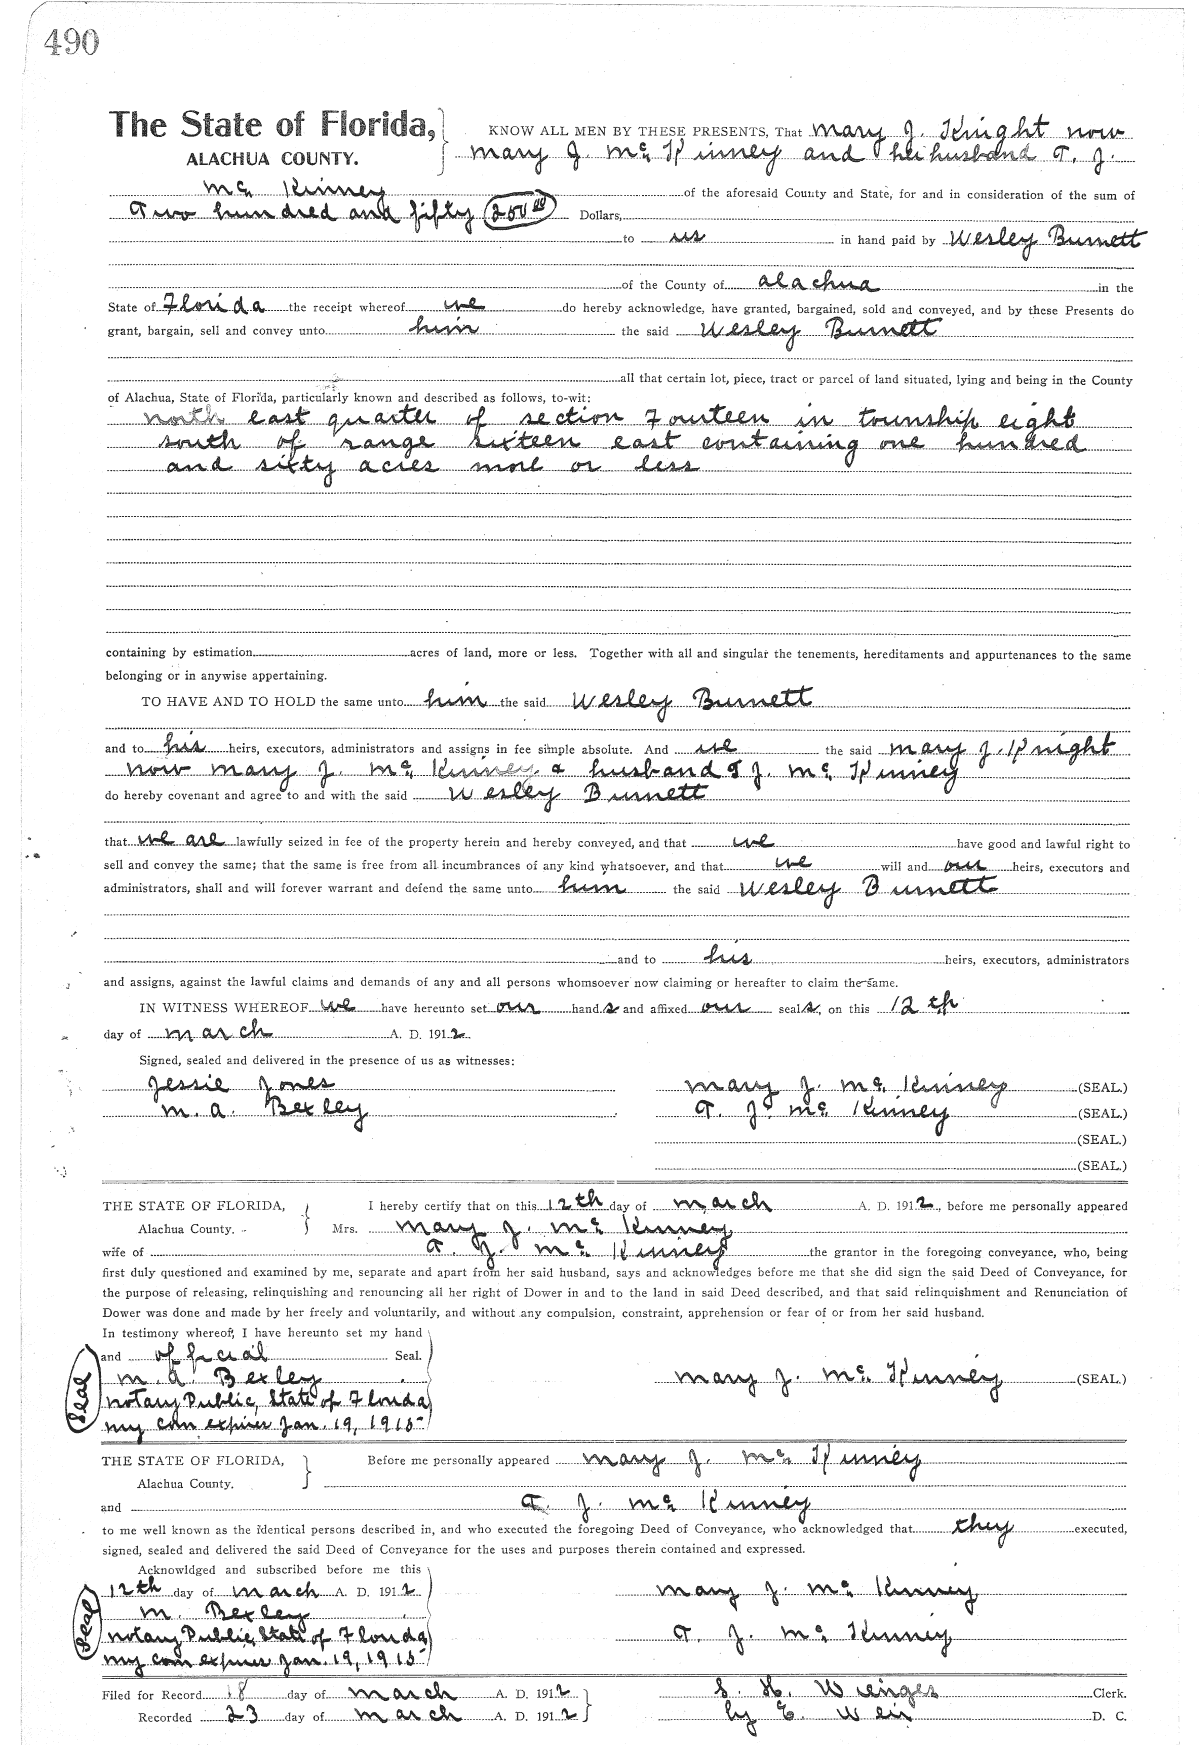 490
The State of Florida, KNOW ALL MEN BY THESE PRESENTS, That Mary J. Knight now
ALACHUA COUNTY. Mary J. Mc Kinney and her husband T. J.
Mc Kinney of the aforesaid County and State, for and in consideration of the sum of
Two hundred and fifty Dollars,
to us in hand paid by Wesley Burnett
of the County of Alachua in the
State of Florida the receipt whereof we do hereby acknowledge, have granted, bargained, sold and conveyed, and by these Presents do
grant, bargain, sell and convey unto him the said Wesley Burnett
all that certain lot, piece, tract or parcel of land situated, lying and being in the County
of Alachua, State of Florida, particularly known and described as follows, to-wit:
North east quarter of section Fourteen in township eight
south of range sixteen east containing one hundred
and sixty acres more or less
containing by estimation acres of land, more or less. Together with all and singular the tenements, hereditaments and appurtenances to the same
belonging or in anywise appertaining.
TO HAVE AND TO HOLD the same unto him the said Wesley Burnett
and to his heirs, executors, administrators and assigns in fee simple absolute. And we the said Mary J. Knight
now Mary J. Mc Kinney & husband T J. Mc Kinney
do hereby covenant and agree to and with the said Wesley Burnett
that we are lawfully seized in fee of the property herein and hereby conveyed, and that we have good and lawful right to
sell and convey the same; that the same is free from all incumbrances of any kind whatsoever, and that we will and our heirs, executors and
administrators, shall and will forever warrant and defend the same unto him the said Wesley Burnett
and to his heirs, executors, administrators
and assigns, against the lawful claims and demands of any and all persons whomsoever now claiming or hereafter to claim the same.
IN WITNESS WHEREOF we have hereunto set our hands and affixed our seals, on this 12th
day of March A. D. 1912
Signed, sealed and delivered in the presence of us as witnesses:
Jessie Jones Mary J. Mc Kinney (SEAL.)
M. A. Bexley T. J. Mc Kinney (SEAL.)
(SEAL.)
(SEAL.)
THE STATE OF FLORIDA, I hereby certify that on this 12th day of March A. D. 1912, before me personally appeared
Alachua County. Mrs. Mary J. Mc Kinney
wife of T. J. Mc Kinney the grantor in the foregoing conveyance, who, being
first duly questioned and examined by me, separate and apart from her said husband, says and acknowledges before me that she did sign the said Deed of Conveyance, for
the purpose of releasing, relinquishing and renouncing all her right of Dower in and to the land in said Deed described, and that said relinquishment and Renunciation of
Dower was done and made by her freely and voluntarily, and without any compulsion, constraint, apprehension or fear of or from her said husband.
In testimony whereof, I have hereunto set my hand
and official Seal.
Seal M. A. Bexley Mary J. Mc Kinney (SEAL.)
Notary Public, State of Florida
my com expires Jan. 19, 1915
THE STATE OF FLORIDA, Before me personally appeared Mary J. Mc Kinney
Alachua County.
and T. J. Mc Kinney
to me well known as the identical persons described in, and who executed the foregoing Deed of Conveyance, who acknowledged that they executed,
signed, sealed and delivered the said Deed of Conveyance for the uses and purposes therein contained and expressed.
Acknowldged and subscribed before me this
12th day of March A. D. 1912 Mary J. Mc Kinney
Seal M. Bexley
Notary Public, State of Florida T. J. Mc Kinney
my com expires Jan. 19, 1915
Filed for Record 18 day of March A. D. 1912 S. H. Wienges Clerk.
Recorded 23 day of March A. D. 1912 by E. Weir D. C.